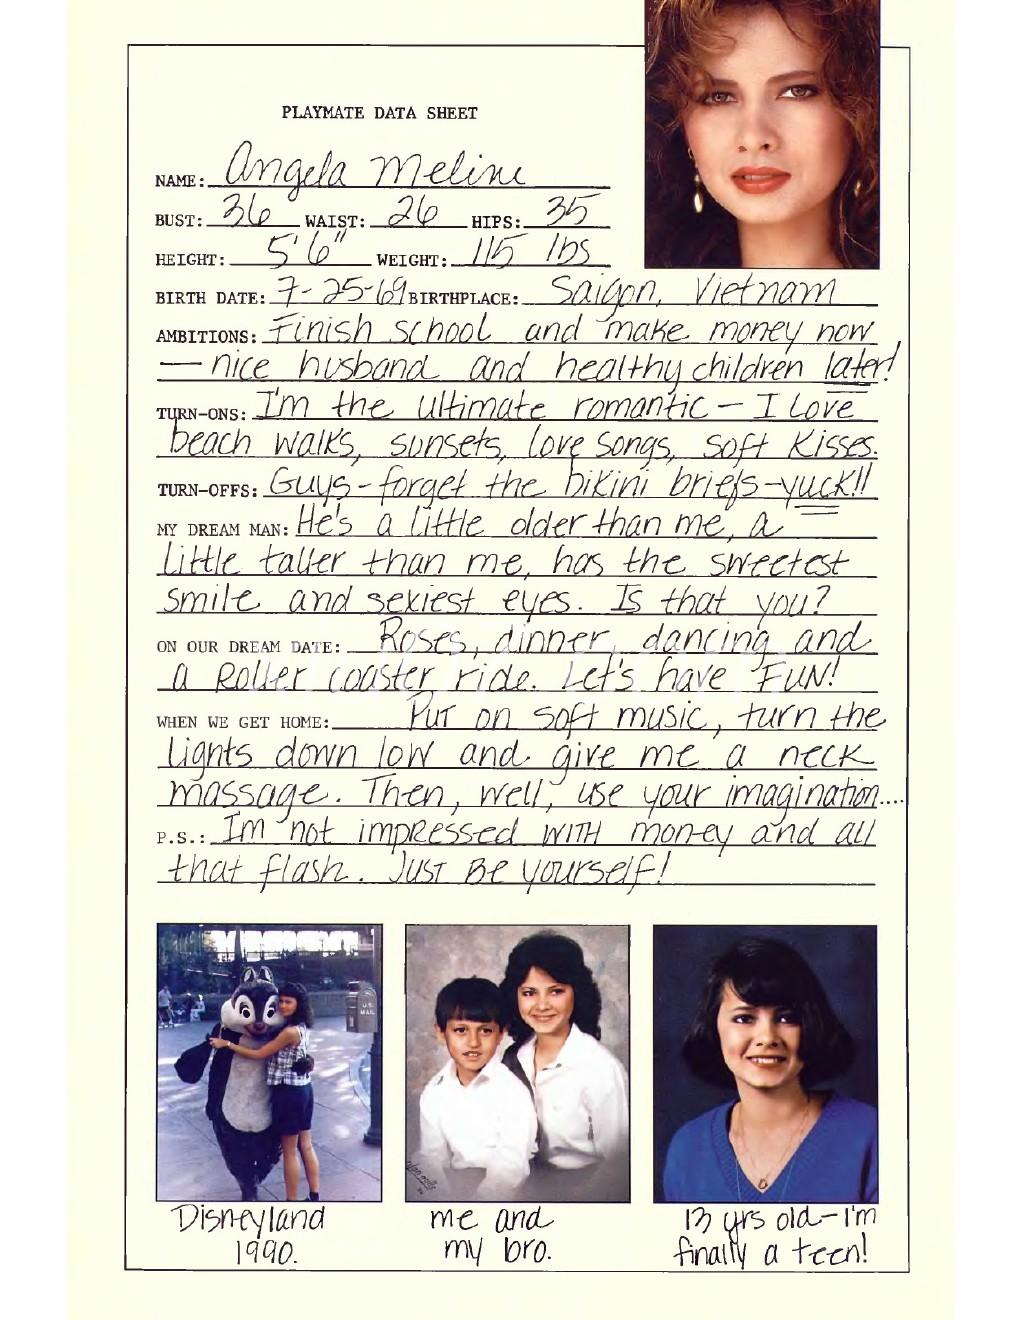 PLAYMATE DATA SHEET
NAME: Angela Melini
BUST: 36 WAIST: 26 HIPS: 35
HEIGHT: 5'6" WEIGHT: 115 lbs
BIRTH DATE: 7-25-69 BIRTHPLACE: Saigon, Vietnam
AMBITIONS: Finish school and make money now
— nice husband and healthy children later!
TURN-ONS: I'm the ultimate romantic — I Love
beach walks, sunsets, love songs, soft kisses.
TURN-OFFS: Guys - forget the bikini briefs - yuck!!
MY DREAM MAN: He's a little older than me, a
little taller than me, has the sweetest
smile and sexiest eyes. Is that you?
ON OUR DREAM DATE: Roses, dinner, dancing and
a Roller coaster ride. Let's have FUN!
WHEN WE GET HOME: Put on soft music, turn the
lights down low and give me a neck
massage. Then, well, use your imagination....
P.S.: I'm not impressed with money and all
that flash. Just Be yourself!
U.S.
MAIL
Disneyland
1990.
me and
my bro.
13 yrs old - I'm
finally a teen!